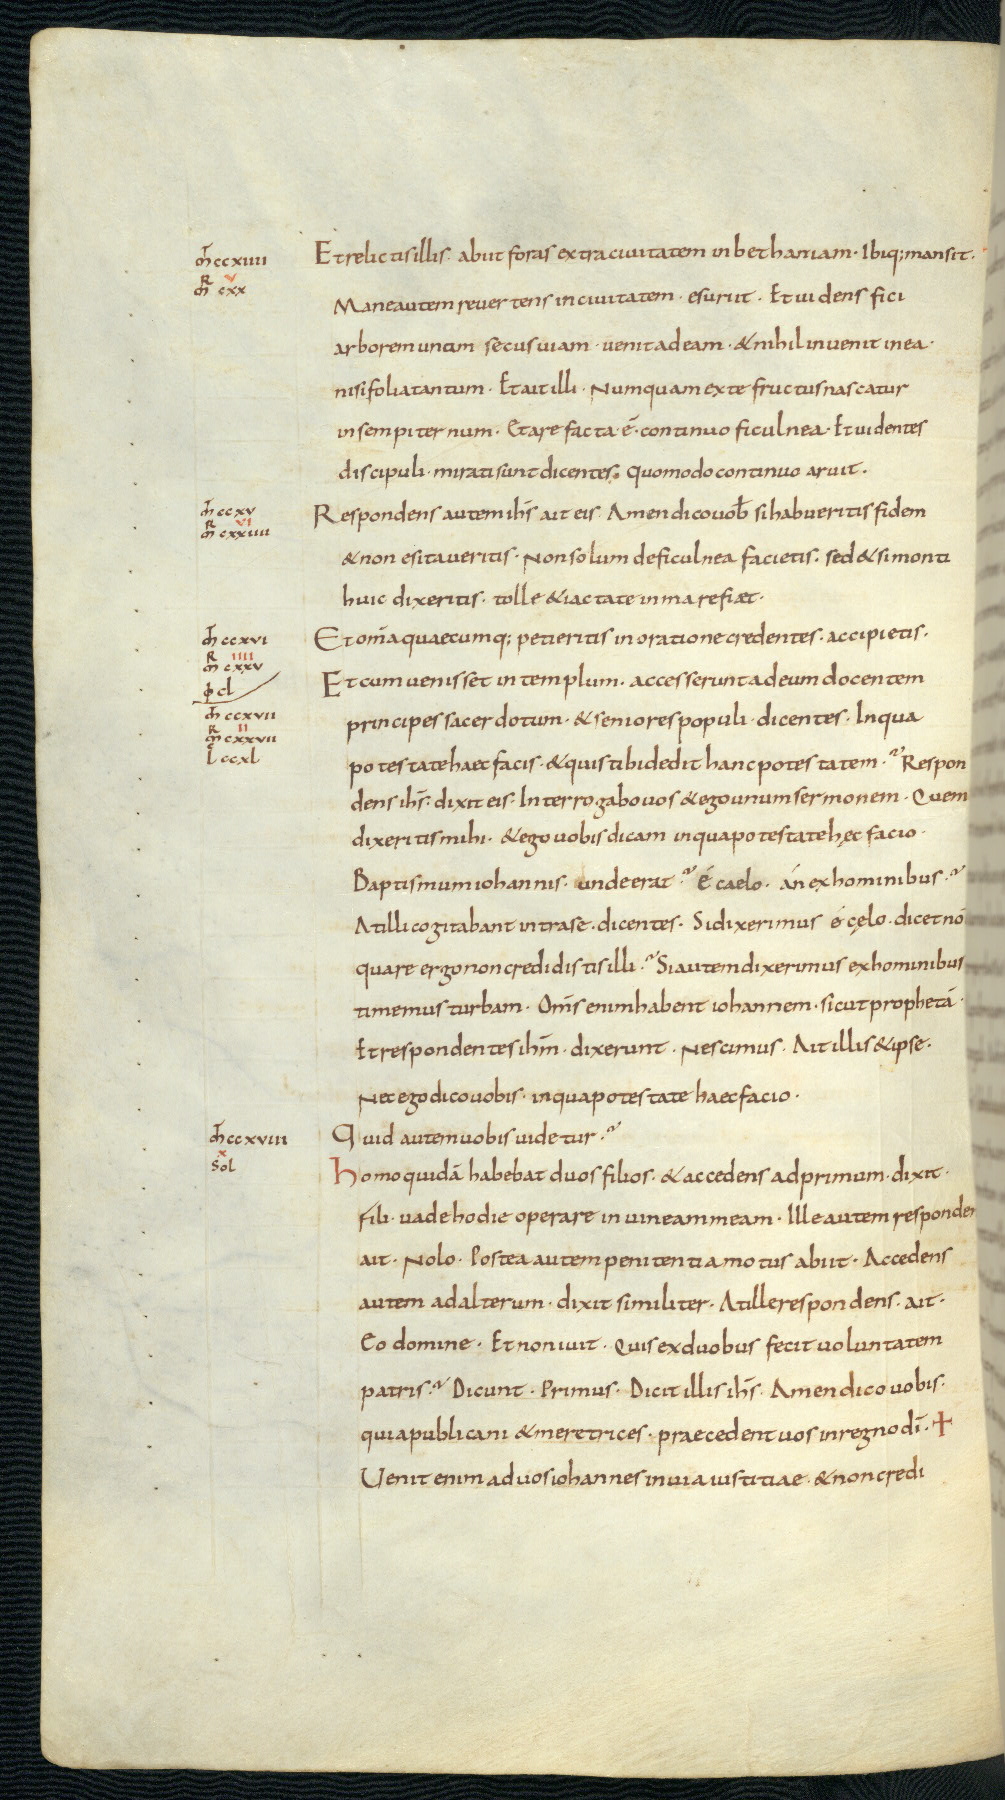 m̄ ccxiiii
Et relictis illis· abiit foras extra ciuitatem in bethaniam· Ibiq; mansit·
v
R
m̄ cxx
Mane autem reuertens in ciuitatem· esuriit· Et uidens fici
arborem unam secus uiam· uenit ad eam· & nihil inuenit in ea·
nisi folia tantum· Et ait illi· Numquam ex te fructus nascatur
in sempiternum· Et arefacta ē· continuo ficulnea· Et uidentes
discipuli· mirati sunt dicentes; Quomodo continuo aruit·
m̄ ccxv
Respondens autem ihs̄ ait eis· Amen dico uob̄ si habueritis fidem
vi
R
m̄ cxxiiii
& non esitaueritis· Non solum de ficulnea facietis· sed & si monti
huic dixeritis· tolle & iacta te in mare fiæt·
m̄ ccxvi
Et om̄a quaecumq; petieritis in oratione credentes· accipietis·
iiii
R
m̄ cxxv
φ cl
Et cum uenisset in templum· accesserunt ad eum docentem
m̄ ccxvii
principes sacerdotum· & seniores populi· dicentes· In qua
ii
R
m̄ cxxvii
l ccxl
potestate haec facis· & quis tibi dedit hanc potestatem· Respon
dens ihs̄· dixit eis· Interrogabo uos & ego unum sermonem· Quem
dixeritis mihi· & ego uobis dicam in qua potestate hęc facio·
Baptismum iohannis· unde erat· é caelo· án ex hominibus·
At illi cogitabant intra se· dicentes· Si dixerimus é cęlo· dicet nō
quare ergo non credidistis illi· Si autem dixerimus ex hominibus
timemus turbam· Om̄s enim habent iohannem· sicut prophetā·
Et respondentes ihm̄· dixerunt· Nescimus· Ait illis & ipse·
Nec ego dico uobis· in qua potestate haec facio·
m̄ ccxviii
Quid autem uobis uidetur·
x
Sol
Homo quidā habebat duos filios· & accedens ad primum· dixit·
fili· uade hodie operare in uineam meam· Ille autem responden
ait· Nolo· Postea autem penitentia motus abiit· Accedens
autem ad alterum· dixit similiter· At ille respondens· ait·
Eo domine· Et non iuit· Quis ex duobus fecit uoluntatem
patris· Dicunt· Primus· Dicit illis ihs̄· Amen dico uobis·
quia publicani & meretrices· praecedent uos in regno dī· +
Uenit enim ad uos iohannes in uia iustitiae· & non credi